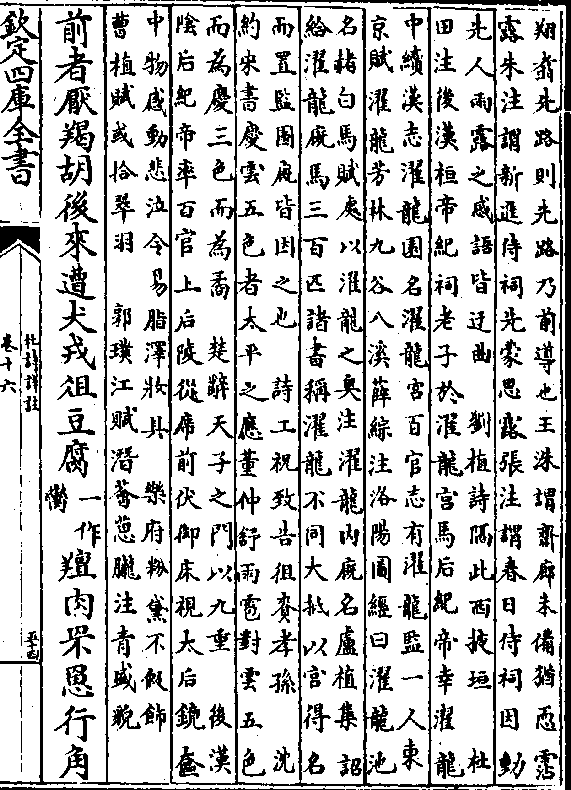 翔翥先路則先路乃前導也王洙謂齋廊未備猶恐霑
露朱注謂新進侍祠先蒙恩露張注謂春日侍祠因動
先人雨露之感語皆迂曲　劉楨詩隔此西掖垣　杜
田注後漢桓帝紀祠老子於濯龍宫馬后紀帝幸濯龍
中續漢志濯龍園名濯龍宫百官志有濯龍監一人東
京賦濯龍芳林九谷八溪薛綜注洛陽圖經曰濯龍池
名赭白馬賦處以濯龍之奥注濯龍内廐名盧植集詔
給濯龍廐馬三百匹諸書稱濯龍不同大抵以宫得名
而置監園廐皆因之也　詩工祝致告徂賚孝孫　沈
約宋書慶雲五色者太平之應董仲舒雨雹對雲五色
而為慶三色而為矞　楚辭天子之門以九重　後漢
陰后紀帝率百官上后陵從席前伏御床視太后鏡奩
中物感動悲泣令易脂澤妝具　樂府粉黛不假飾
曹植賦或拾翠羽　郭璞江賦潛薈蔥朧注青盛貌
前者厭羯胡後來遭犬戎俎豆腐一作臠羶肉罘罳行角
欽定四庫全書
杜詩詳註
卷十六
五十四